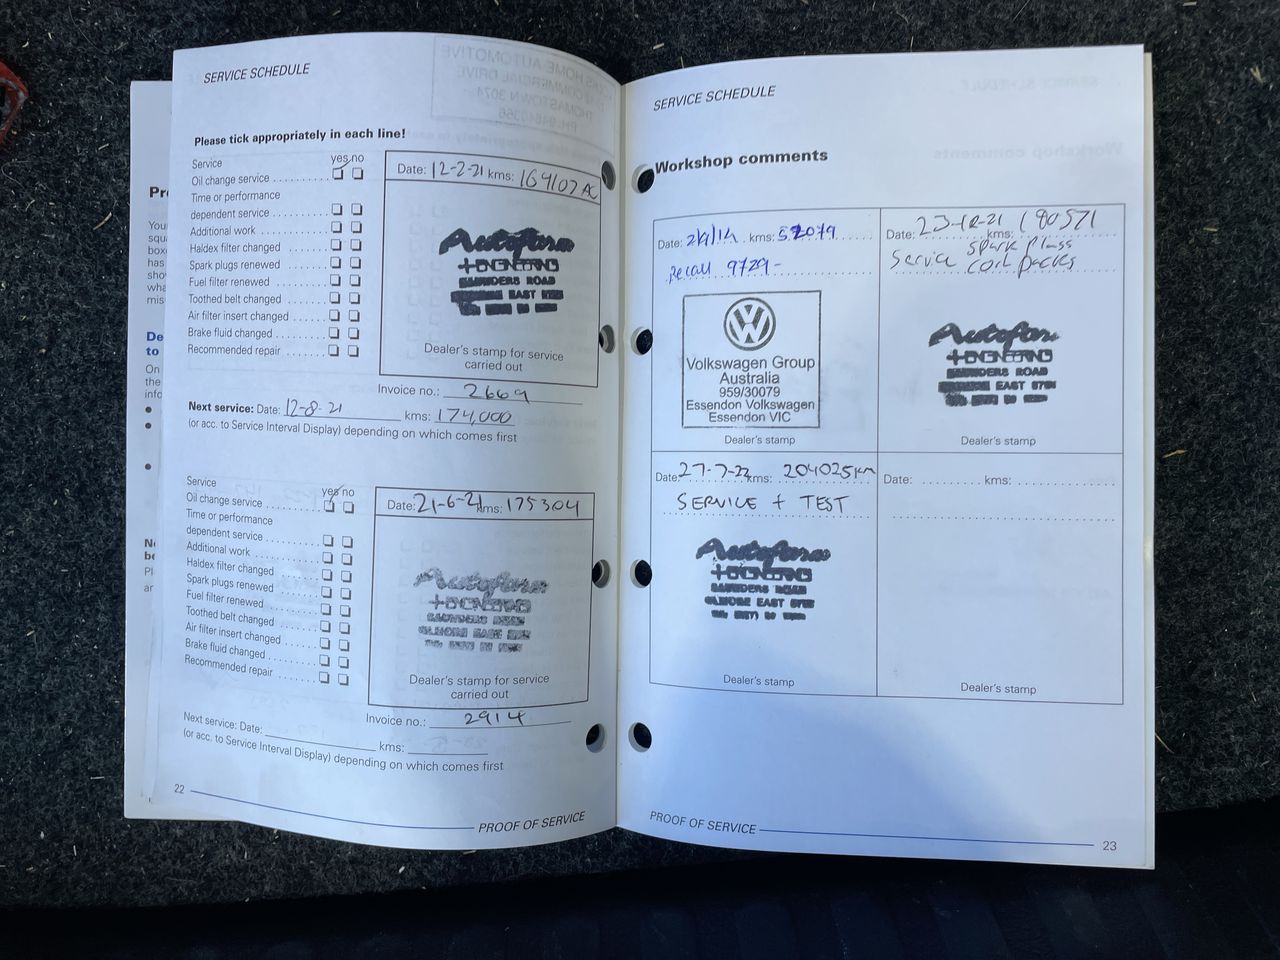 SERVICE SCHEDULE
Please tick appropriately in each line!
Service yes no
Oil change service
Time or performance
dependent service
Additional work
Haldex filter changed
Spark plugs renewed
Fuel filter renewed
Toothed belt changed
Air filter insert changed
Brake fluid changed
Recommended repair
Date: 12-2-21 kms: 169107 AC
Autoform
+ ENGINEERING
SAUNDERS ROAD
EAST
Dealer's stamp for service
carried out
Invoice no.: 2669
Next service: Date: 12-8-21 kms: 174,000
(or acc. to Service Interval Display) depending on which comes first
Service yes no
Oil change service
Time or performance
dependent service
Additional work
Haldex filter changed
Spark plugs renewed
Fuel filter renewed
Toothed belt changed
Air filter insert changed
Brake fluid changed
Recommended repair
Date: 21-6-21 kms: 175304
Autoform
+ ENGINEERING
SAUNDERS ROAD
EAST
Dealer's stamp for service
carried out
Invoice no.: 2914
Next service: Date: kms:
(or acc. to Service Interval Display) depending on which comes first
22
PROOF OF SERVICE
SERVICE SCHEDULE
Workshop comments
Date: kms: 52079
Recall 9729-
Volkswagen Group
Australia
959/30079
Essendon Volkswagen
Essendon VIC
Dealer's stamp
Date: 23-12-21 kms: 180571
Service spark plugs
coil packs
Autoform
+ ENGINEERING
SAUNDERS ROAD
EAST
Dealer's stamp
Date: 27-7-22 kms: 204025km
SERVICE + TEST
Autoform
+ ENGINEERING
SAUNDERS ROAD
EAST
Dealer's stamp
Date: kms:
Dealer's stamp
PROOF OF SERVICE
23